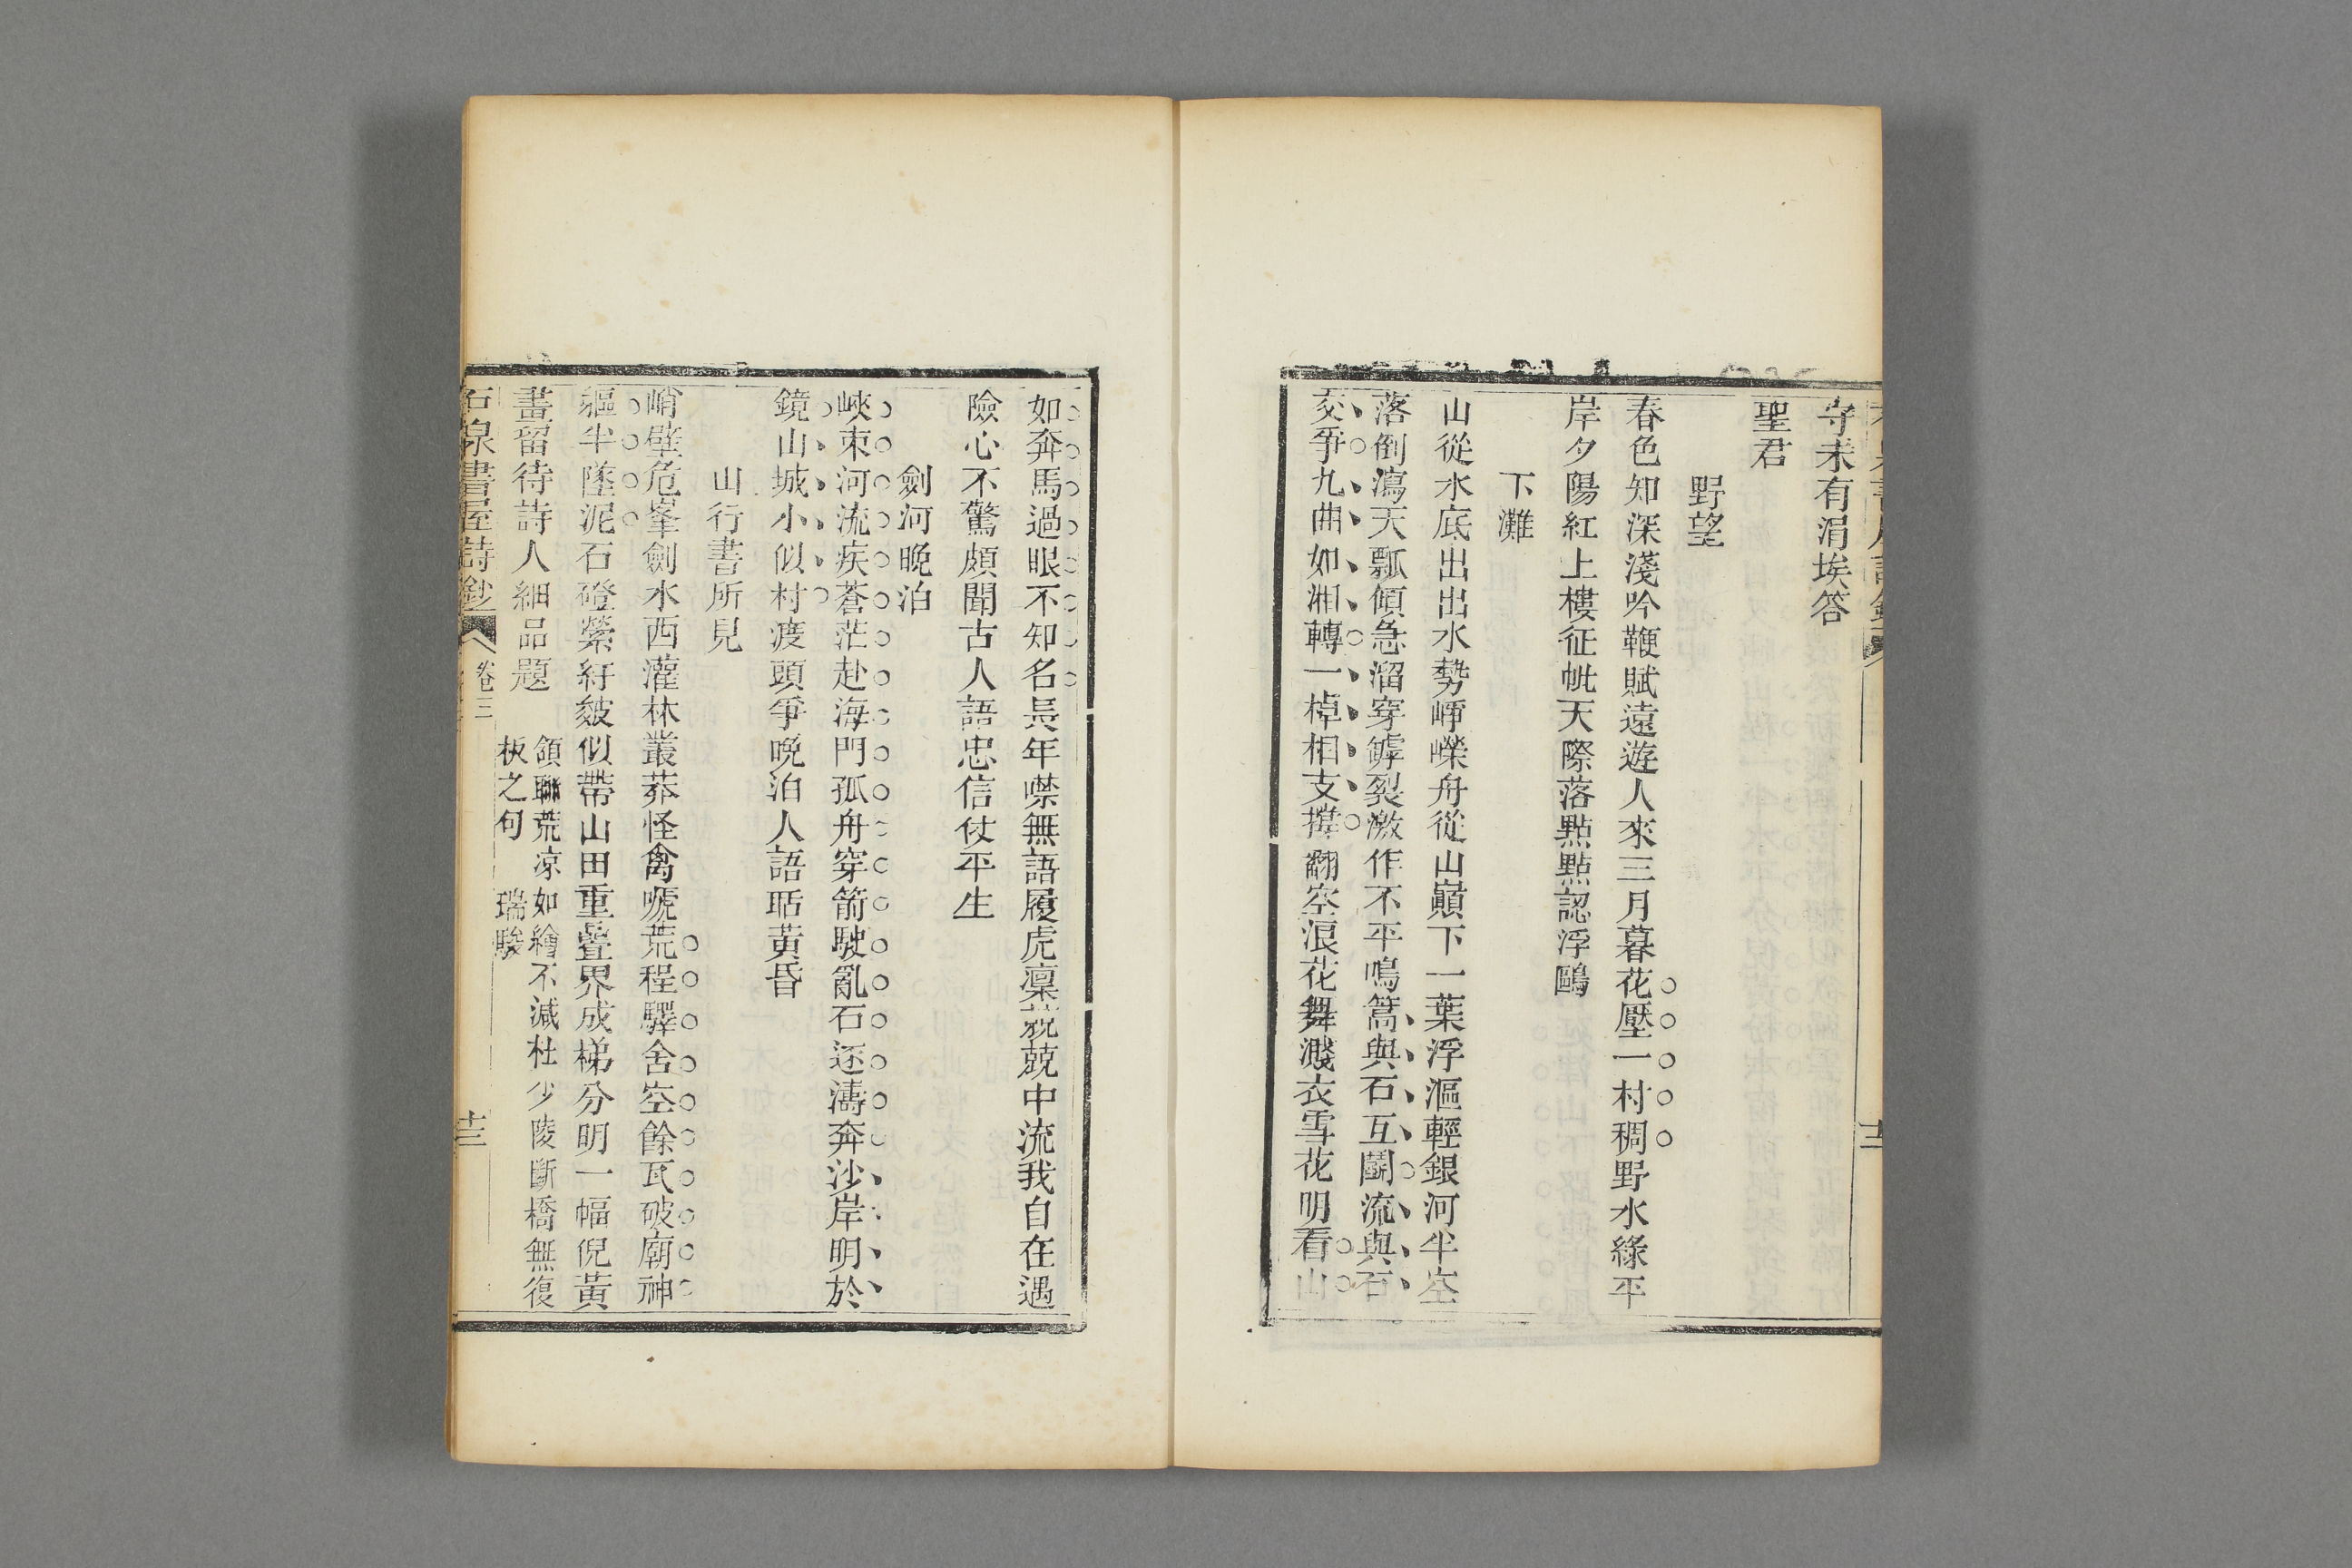 守未有涓埃答
聖君
野望
春色知深淺吟鞭賦遠遊人來三月暮花壓一村稠野水綠平
岸夕陽紅上樓征帆天際落點點認浮鷗
下灘
山從水底出出水勢崢嶸舟從山巔下一葉浮漚輕銀河半空
落倒瀉天瓢傾急溜穿罅裂激作不平鳴篙與石互鬬流與石
交爭九曲如湘轉一棹相支撐翻空浪花舞濺衣雪花明看山
如奔馬過眼不知名長年噤無語履虎凜兢兢中流我自在遇
險心不驚頗聞古人語忠信仗平生
劍河晚泊
峽束河流疾蒼茫赴海門孤舟穿箭駛亂石逐濤奔沙岸明於
鏡山城小似村渡頭爭晚泊人語聒黃昏
山行書所見
峭壁危峯劍水西灌林叢莽怪禽嗁荒程驛舍空餘瓦破廟神
軀半墮泥石磴縈紆皴似帶山田重疊界成梯分明一幅倪黃
畫留待詩人細品題
頷聯荒凉如繪不減杜少陵斷橋無復
板之句 瑞駿
石泉書屋詩鈔 卷三 十三